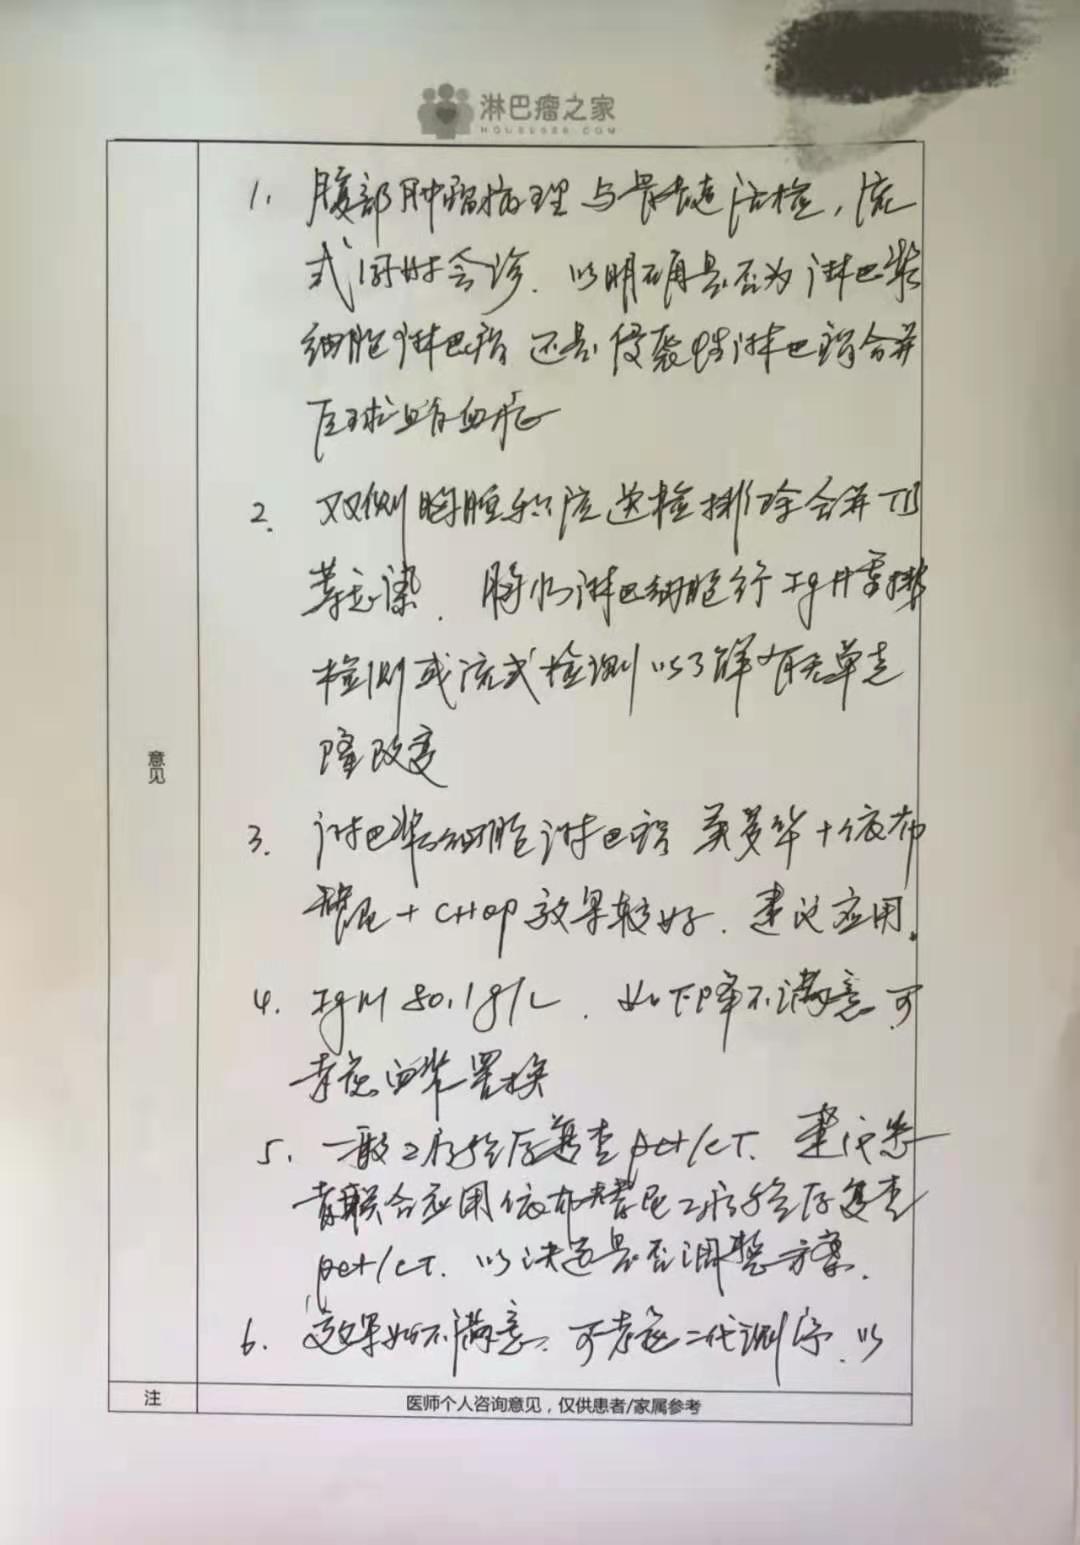 淋巴瘤之家
HOUSE086.COM
意见
1. 腹部肿瘤病理与骨髓活检,流
式同时会诊.以明确是否为淋巴浆
细胞淋巴瘤还是侵袭性淋巴瘤合并
巨球蛋白血症
2. 双侧胸腔积液送检排除合并TB
等感染.胸水淋巴细胞行IgH重排
检测或流式检测以了解有无单克
隆改变
3. 淋巴浆细胞淋巴瘤 美罗华+依布
替尼+CHOP效果较好.建议应用.
4. IgM 80.1g/L.如下降不满意可
考虑血浆置换
5. 一般2疗程后复查pet/CT.建议患
者联合应用依布替尼2疗程后复查
pet/CT.以决定是否调整方案.
6. 效果如不满意.可考虑二代测序.以
注
医师个人咨询意见,仅供患者/家属参考